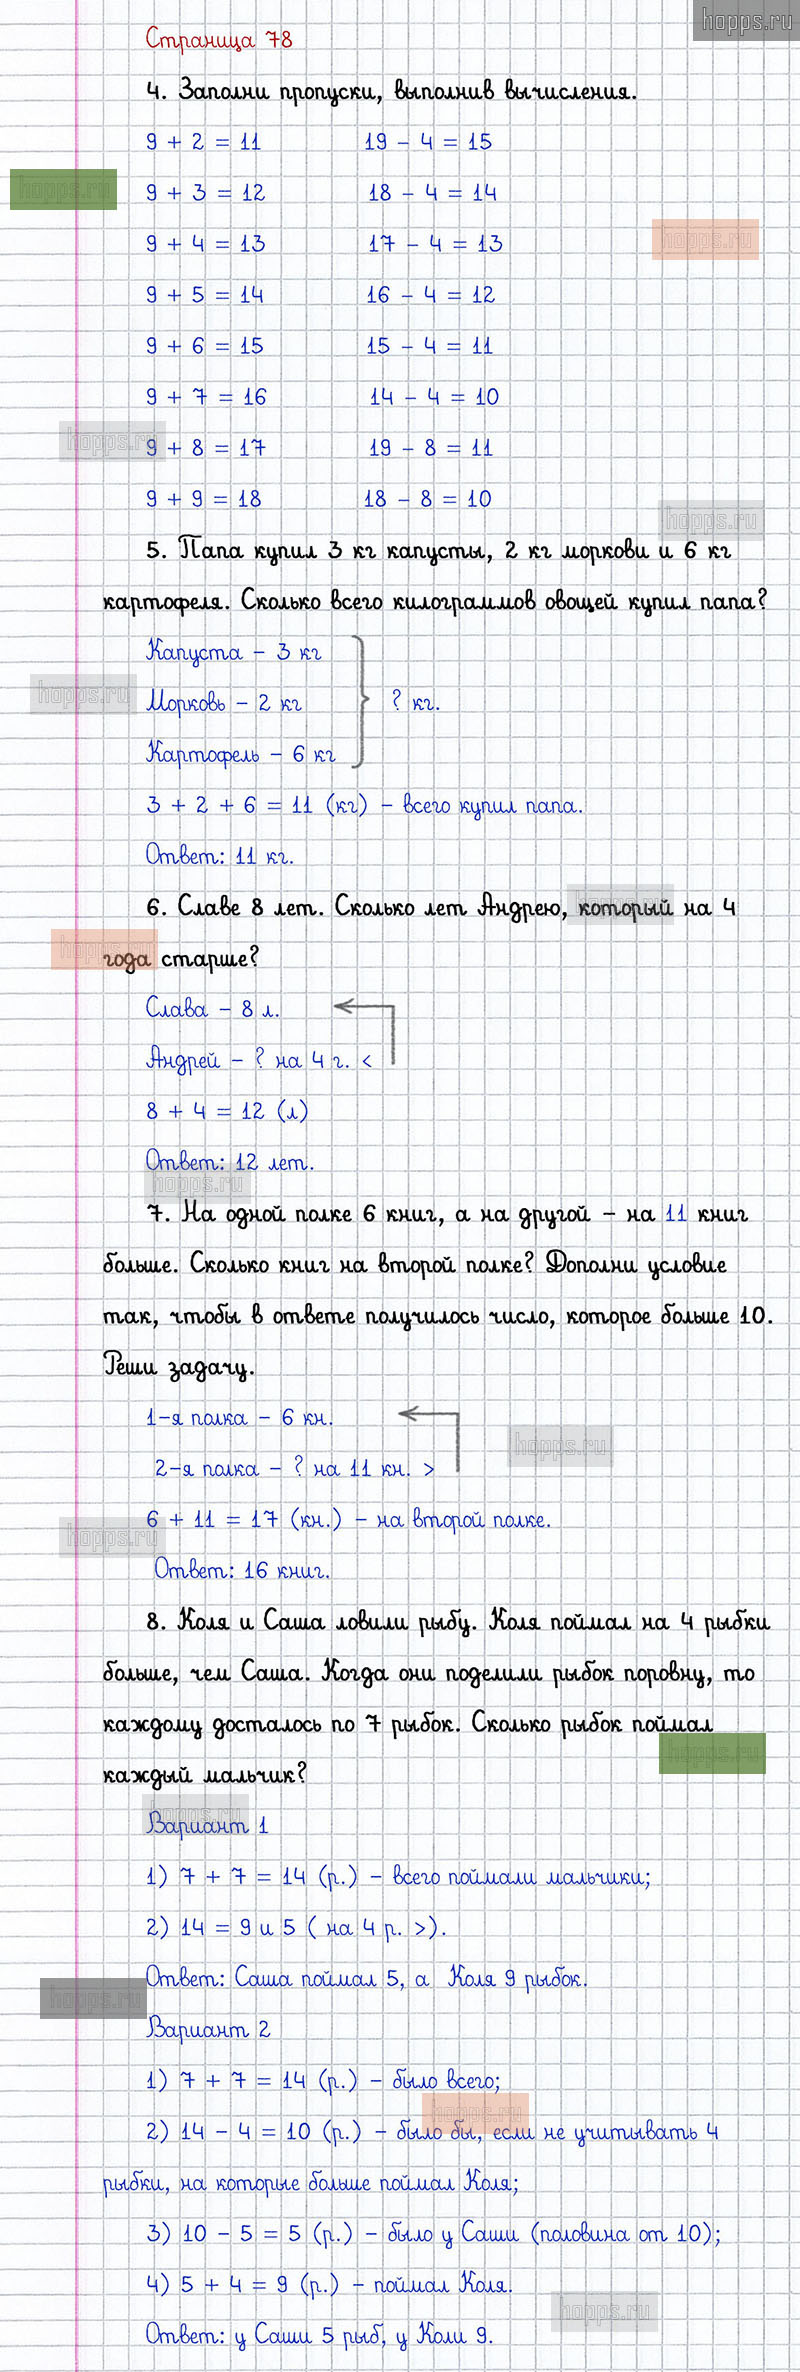 hopps.ru
Страница 78
4. Заполни пропуски, выполнив вычисления.
9 + 2 = 11 19 - 4 = 15
hopps.ru
9 + 3 = 12 18 - 4 = 14
hopps.ru
9 + 4 = 13 17 - 4 = 13
9 + 5 = 14 16 - 4 = 12
9 + 6 = 15 15 - 4 = 11
9 + 7 = 16 14 - 4 = 10
hopps.ru
9 + 8 = 17 19 - 8 = 11
9 + 9 = 18 18 - 8 = 10
hopps.ru
5. Папа купил 3 кг капусты, 2 кг моркови и 6 кг
картофеля. Сколько всего килограммов овощей купил папа?
Капуста - 3 кг
hopps.ru
Морковь - 2 кг ? кг.
Картофель - 6 кг
3 + 2 + 6 = 11 (кг) - всего купил папа.
Ответ: 11 кг.
hopps.ru
6. Славе 8 лет. Сколько лет Андрею, который на 4
hopps.ru
года старше?
Слава - 8 л.
Андрей - ? на 4 г. <
8 + 4 = 12 (л)
Ответ: 12 лет.
hopps.ru
7. На одной полке 6 книг, а на другой - на 11 книг
больше. Сколько книг на второй полке? Дополни условие
так, чтобы в ответе получилось число, которое больше 10.
Реши задачу.
1-я полка - 6 кн.
hopps.ru
2-я полка - ? на 11 кн. >
6 + 11 = 17 (кн.) - на второй полке.
hopps.ru
Ответ: 16 книг.
8. Коля и Саша ловили рыбу. Коля поймал на 4 рыбки
больше, чем Саша. Когда они поделили рыбок поровну, то
каждому досталось по 7 рыбок. Сколько рыбок поймал
hopps.ru
каждый мальчик?
hopps.ru
Вариант 1
1) 7 + 7 = 14 (р.) - всего поймали мальчики;
2) 14 = 9 и 5 ( на 4 р. >).
Ответ: Саша поймал 5, а Коля 9 рыбок.
hopps.ru
Вариант 2
1) 7 + 7 = 14 (р.) - было всего;
hopps.ru
2) 14 - 4 = 10 (р.) - было бы, если не учитывать 4
рыбки, на которые больше поймал Коля;
3) 10 - 5 = 5 (р.) - было у Саши (половина от 10);
4) 5 + 4 = 9 (р.) - поймал Коля.
hopps.ru
Ответ: у Саши 5 рыб, у Коли 9.